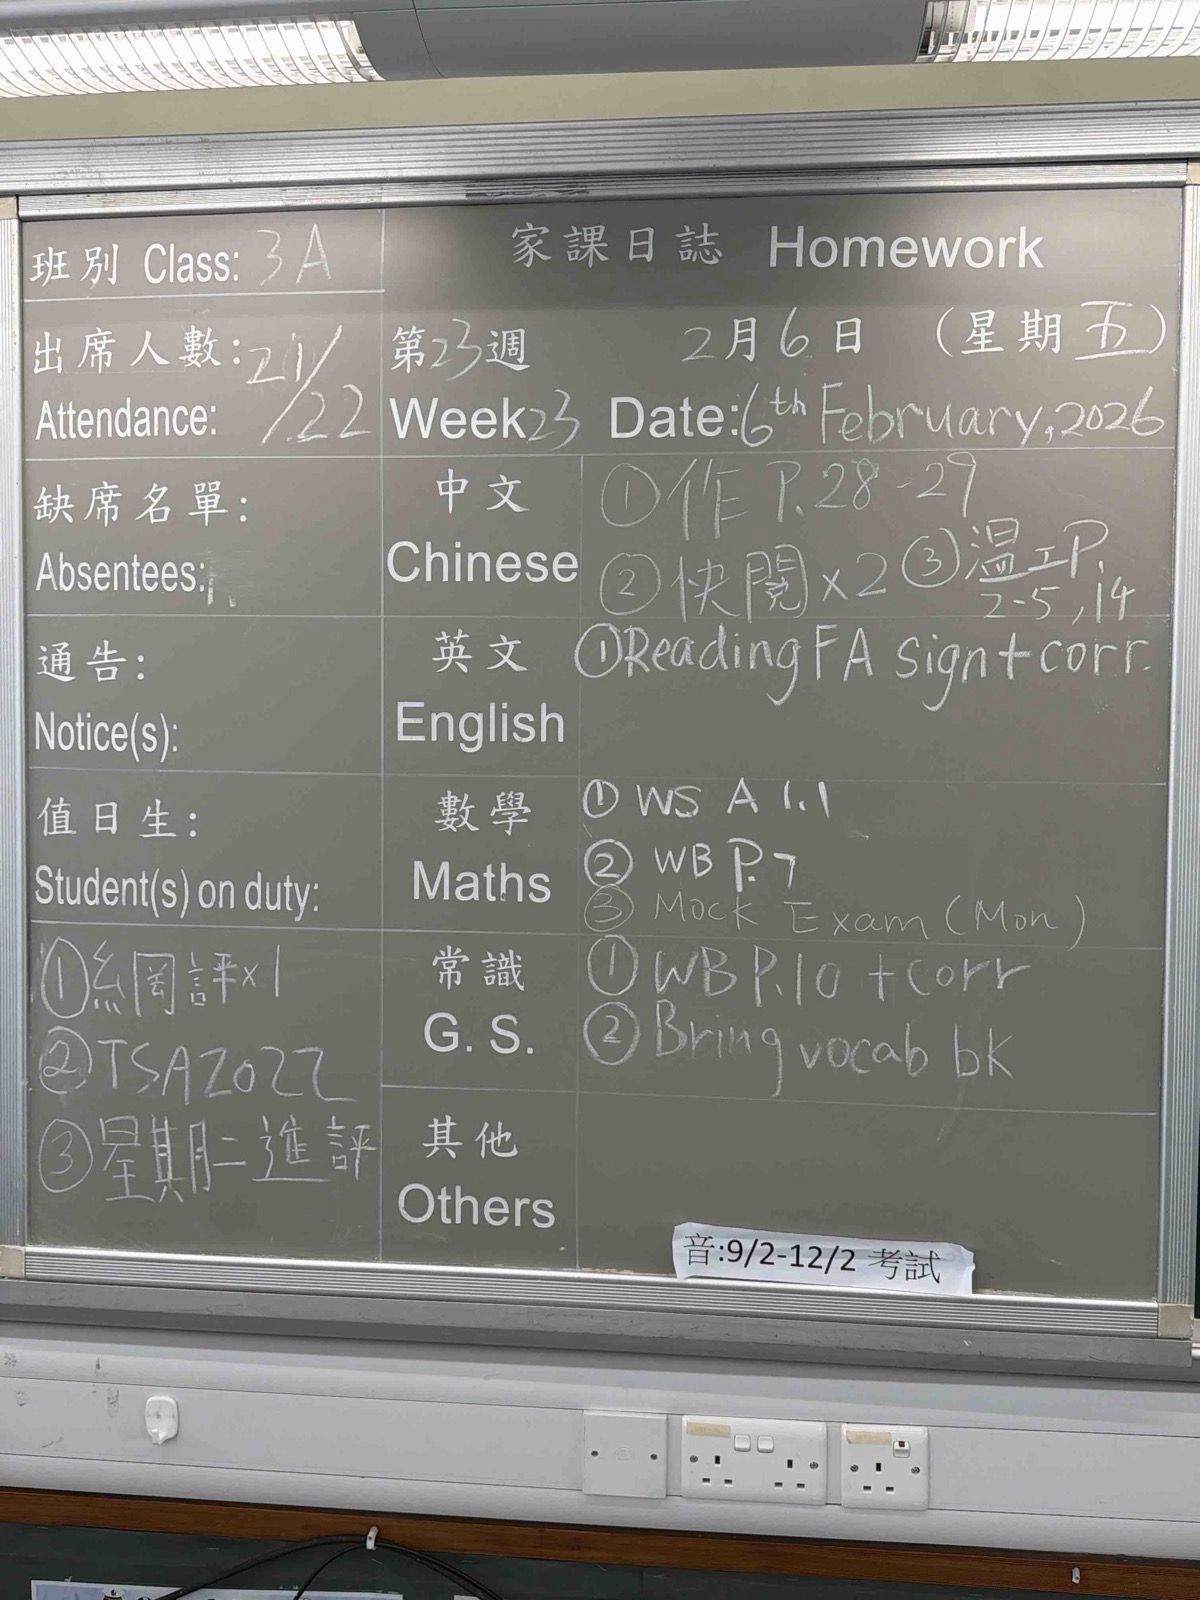 班別 Class: 3A
家課日誌 Homework
出席人數: 21/
Attendance: /22
第23週 2月6日 (星期五)
Week23 Date: 6th February, 2026
缺席名單:
Absentees:
中文
Chinese
①作 P.28-29
②快閱x2 ③溫工P.
2-5, 14
通告:
Notice(s):
英文
English
①Reading FA sign+corr.
值日生:
Student(s) on duty:
數學
Maths
① WS A 1.1
② WB P.7
③ Mock Exam (Mon)
①網評x1
②TSA2022
③星期二進評
常識
G. S.
① WB P.10 +corr
② Bring vocab bk
其他
Others
音:9/2-12/2 考試